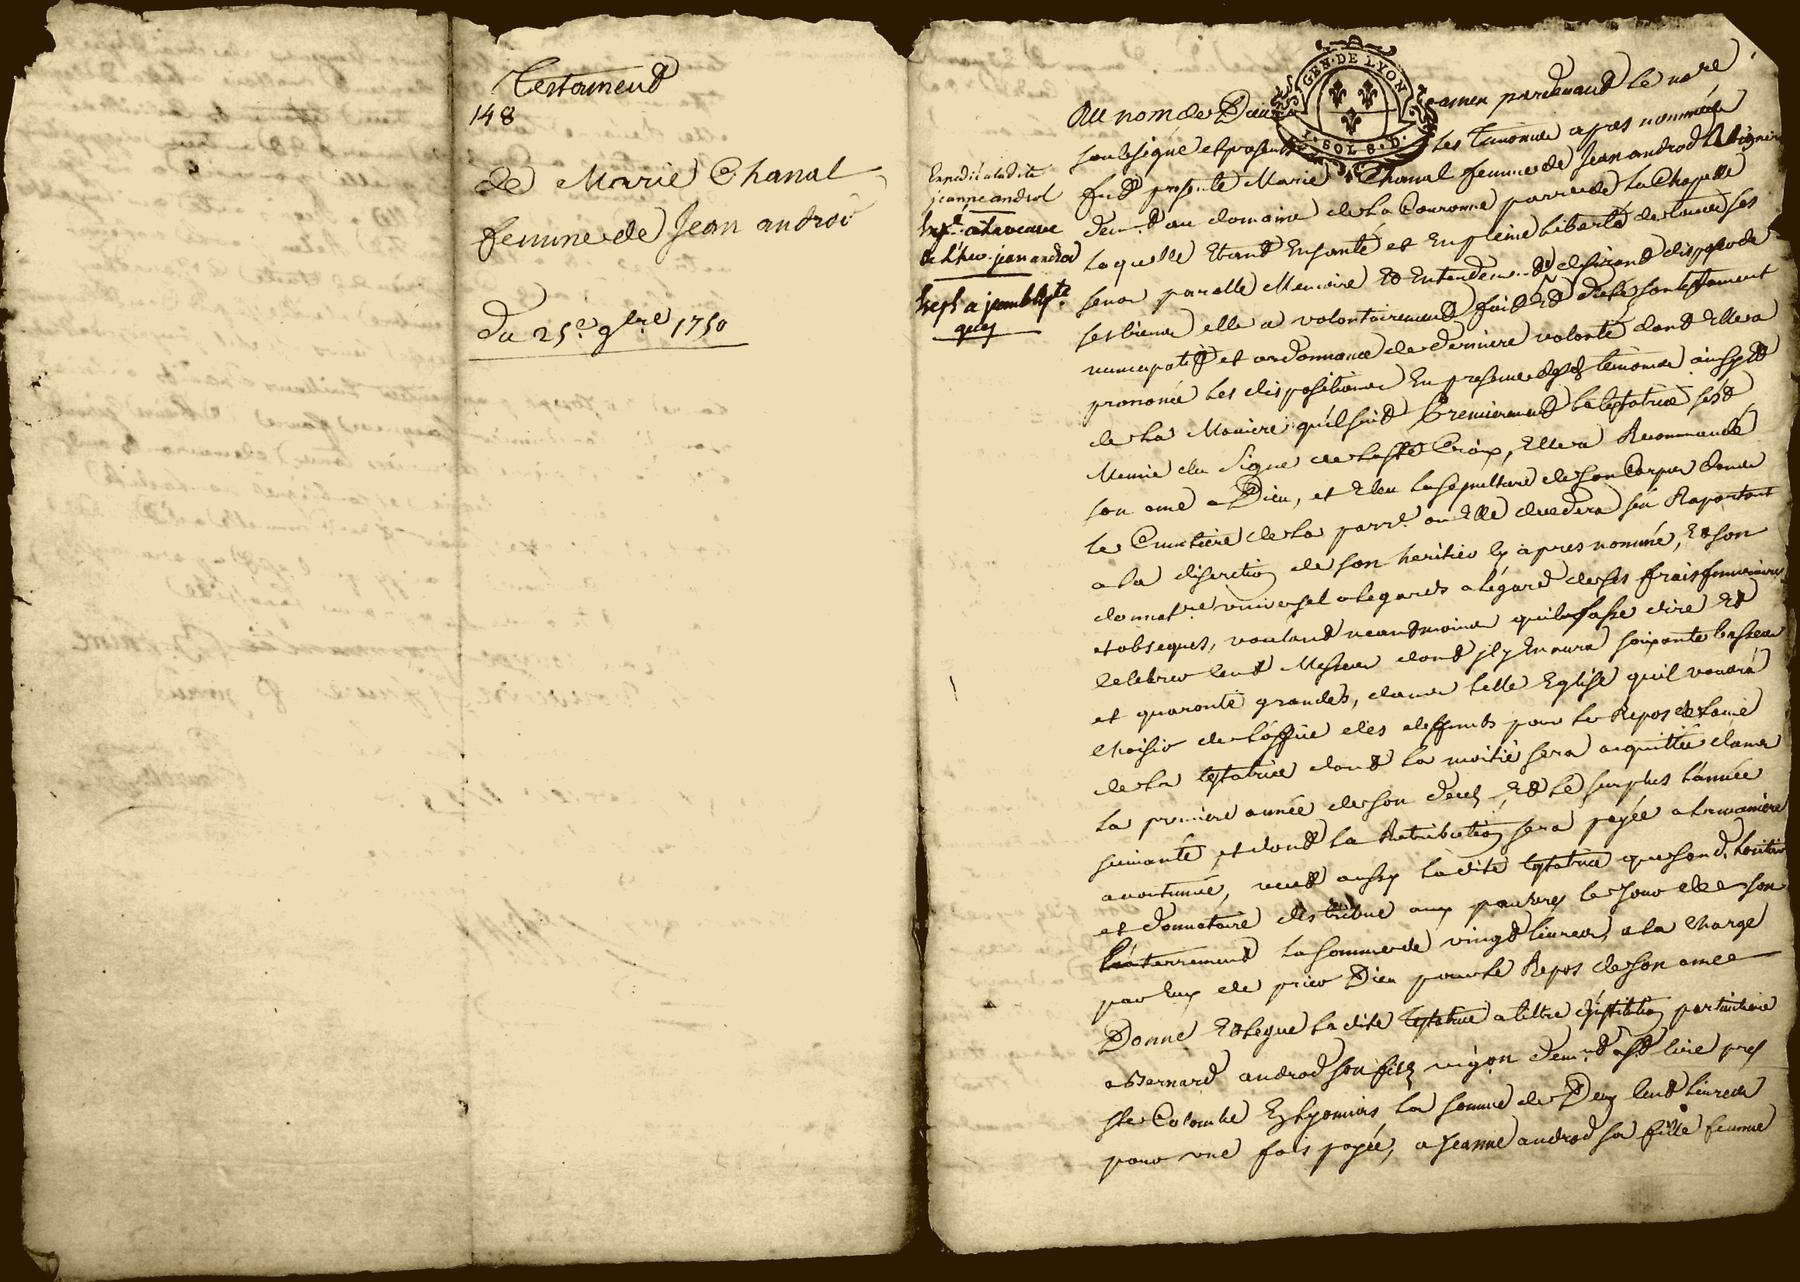 Testament
148
de Marie Chanal
femme de Jean androd
du 25.e 9bre 1750
Expedié a ladite
jeanne androd
Exp. a la veuve
de Theo. jean androd
Exp. a
GEN. DE LYON
I. SOL 8. D.
Au nom de Dieu amen pardevand le no.re
soubsigné et presents Les temoins apres nommés
fud presente Marie Chanal femme de Jean androd Vigneron
dem.t au domaine de La Couronne parr.e de La Chapelle
laquelle Etand En santé et En pleine Liberté de tous ses
sens parolle Memoire Et Entendem.t desirand disposer de
ses biens elle a volontairemend fait Et dicté son testament
nuncupatif et ordonnance de derniere volonté dond Elle a
prononcé Les dispositions En presence desd. temoins ainsy Et
de La Maniere qu'il suit Premieremend La testatrice s'est
Munie du Signe de La Ste Croix, Elle a Recommandé
son ame a Dieu, et Eleu La sepulture de son Corps dans
le Cimetiere de La parr.e ou Elle decedera s'en Raportant
a la discretion de son heritier Cy apres nommé, Et son
donnat.re universel a legard de ses frais funeraires
et obseques, vouland neandmoins quil fasse dire Et
celebrer Cent Messes dond jl y En aura soixante basses
et quarante grandes, dans telle Eglise quil voudra
choisir de L'office des deffunts pour Le Repos de Lame
de La testatrice dond La moitié sera acquittée dans
La premiere année de son deces, Et Le surplus L'année
suivante, et dond La Retribution sera payée a la maniere
acoutumée, veut aussy Ladite testatrice que sond. heritier
et donnataire distribue aux pauvres Le Jour de son
Enterrement La somme de vingt Livres, a la charge
par Eux de prier Dieu pour Le Repos de son ame
Donne Et Legue Ladite testatrice a tiltre d'institution particuliere
a Bernard androd son fils vigon dem.t a St Cire pres
Ste Colombe En Lyonnois La somme de Deux Cent Livres
pour une fois payée, a Jeanne androd sa fille femme